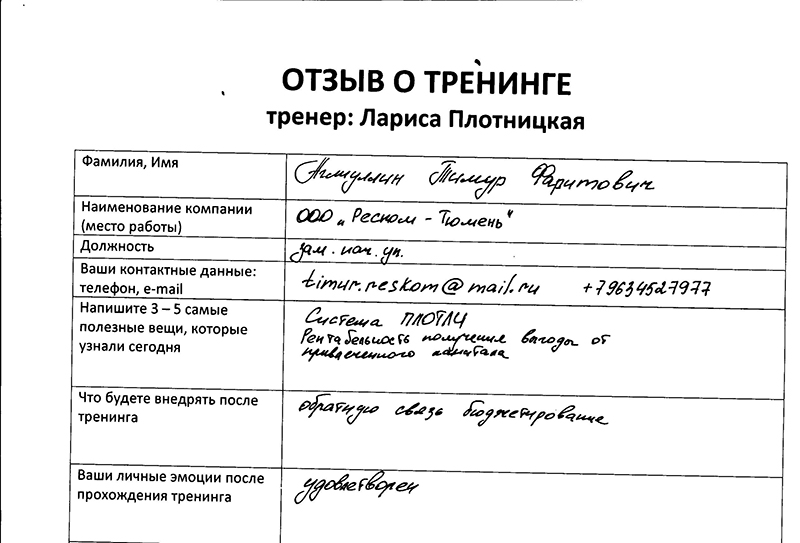 ОТЗЫВ О ТРЕНИНГЕ
тренер: Лариса Плотницкая
Фамилия, Имя
Тимур Фаритович
Наименование компании
(место работы)
ООО „Реском - Тюмень"
Должность
зам. нач. уп.
Ваши контактные данные:
телефон, e-mail
timur.reskom@mail.ru +79634527977
Напишите 3 – 5 самые
полезные вещи, которые
узнали сегодня
Система
Рентабельность получения выгоды от
привлеченного капитала
Что будете внедрять после
тренинга
обратную связь бюджетирование
Ваши личные эмоции после
прохождения тренинга
удовлетворен